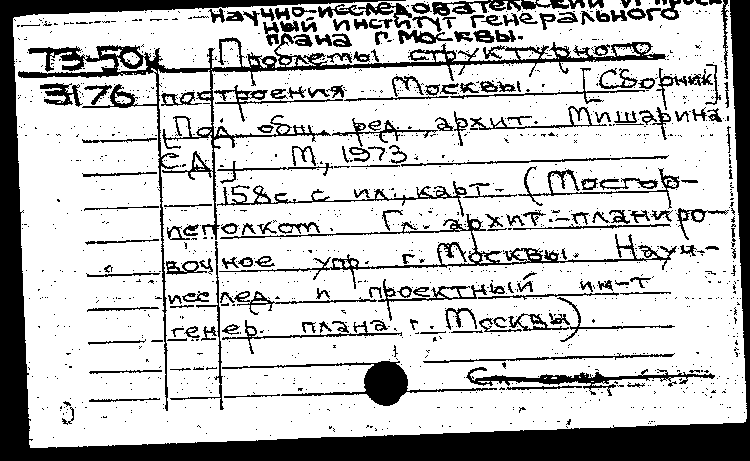 научно-исследовательский и проект
ный институт генерального
плана г. Москвы.
73-50к Проблемы структурного
3176 построения Москвы. [Сборник]
[Под общ. ред. архит. Мишарина
С.Д.] М., 1973.
158с. с ил., карт. (Мосгор-
исполком. Гл. архит.-планиро-
вочное упр. г. Москвы. Науч.-
исслед. и проектный ин-т
генер. плана г. Москвы).